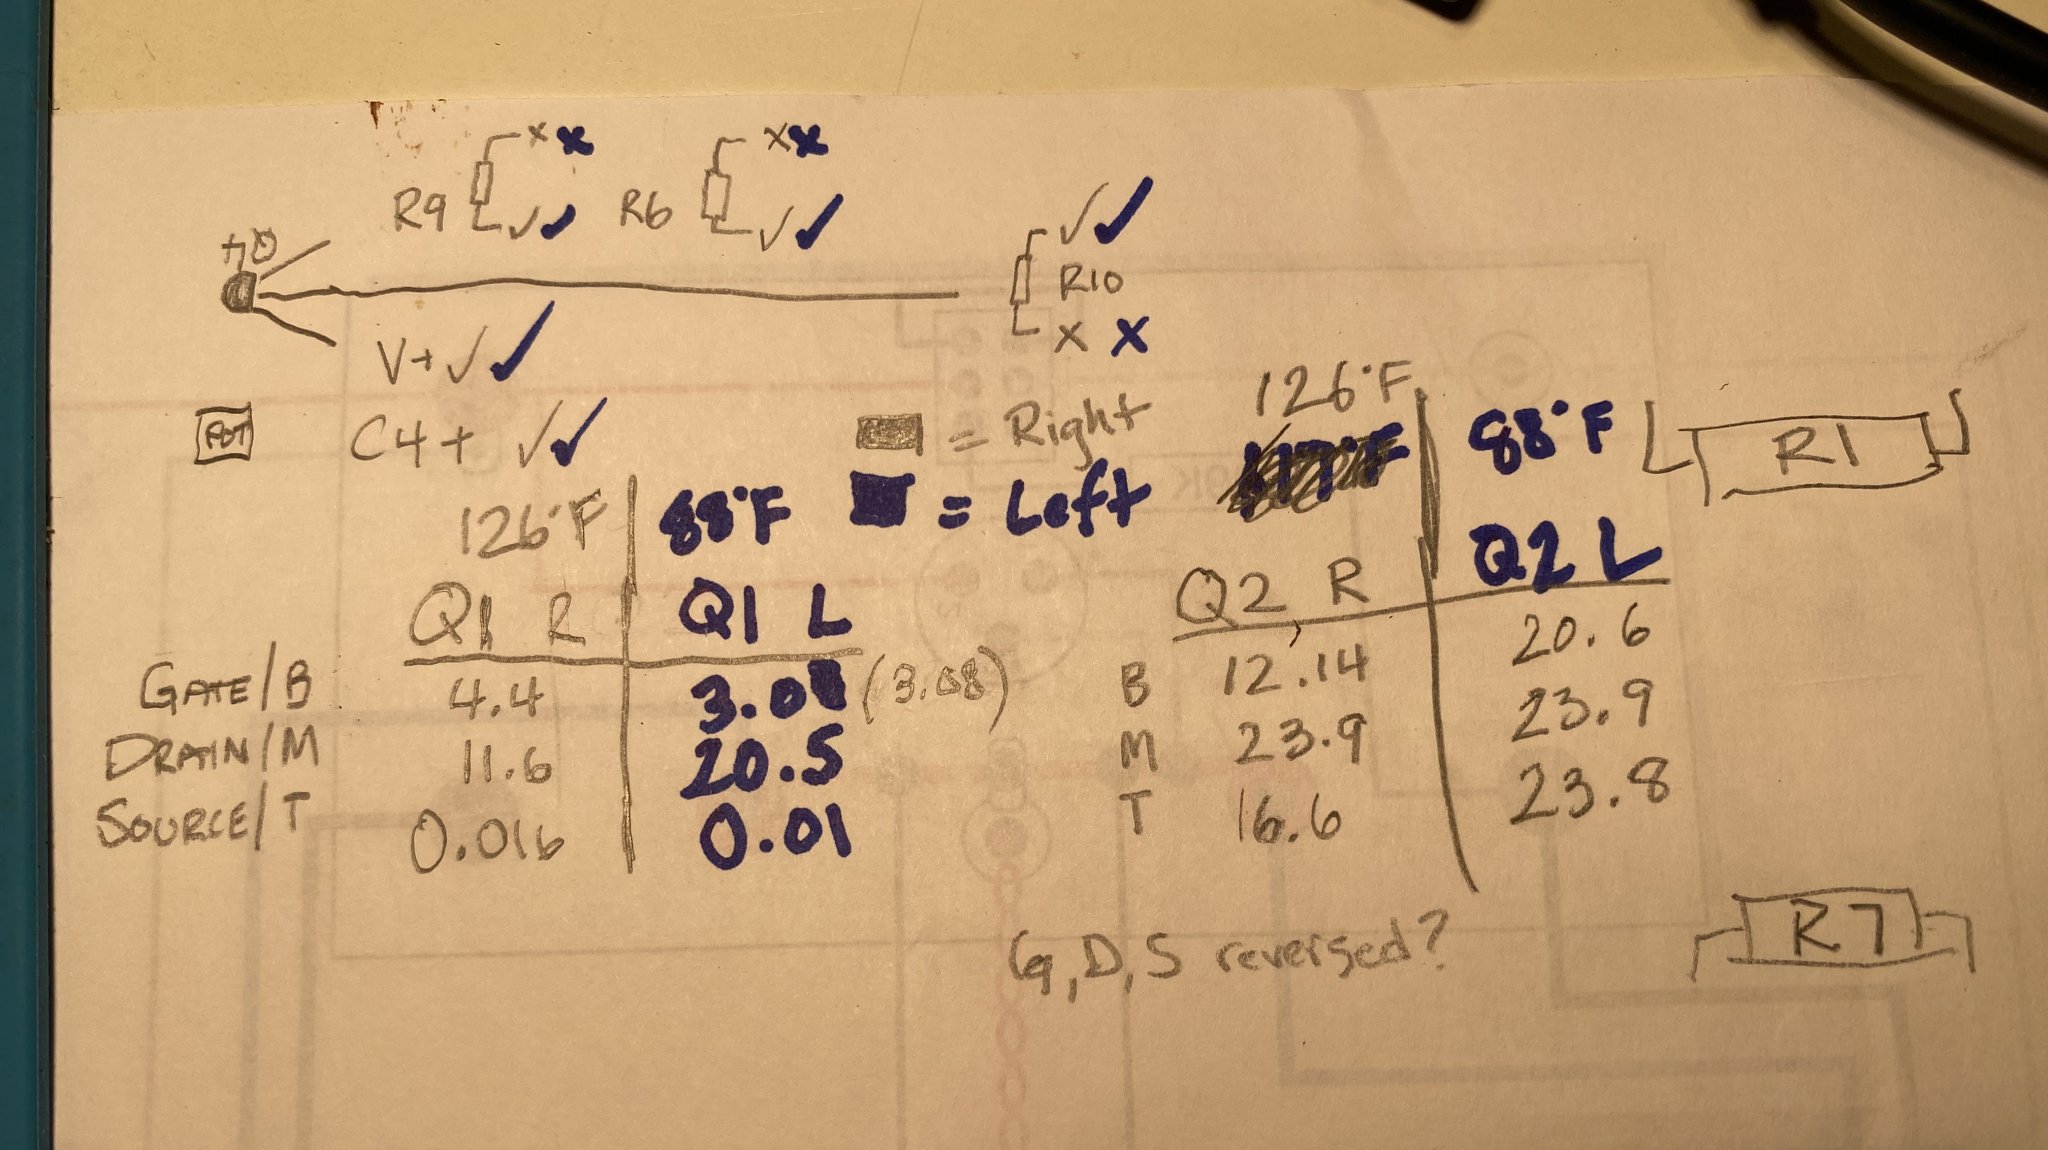 x x x x
R9 ✓✓ R6 ✓✓
✓✓
Q4
R10
x x
V+ ✓✓
126°F
POT C4+ ✓✓ = Right
88°F R1
= Left
126°F 88°F
Q1 R Q1 L
Q2 R Q2 L
GATE/B 4.4 3.08 (3.08)
DRAIN/M 11.6 20.5
SOURCE/T 0.016 0.01
B 12.14 20.6
M 23.9 23.9
T 16.6 23.8
G, D, S reversed?
R7